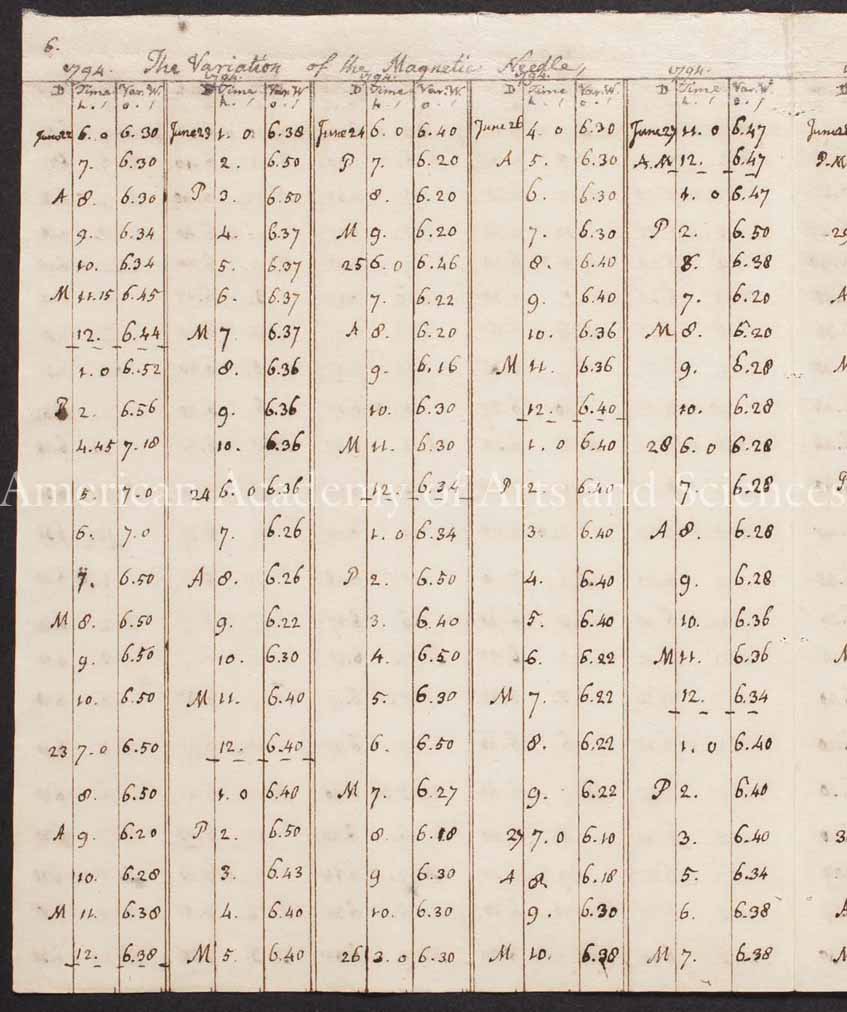 6.
The Variation of the Magnetic Needle,
1794. 1794. 1794. 1794. 1794.
D Time Var. W. D Time Var. W. D Time Var. W. D Time Var. W. D Time Var. W.
h. ' o. ' h. ' o. ' h. ' o. ' h. ' o. ' h. ' o. '
June 22 6. 0 6. 30 June 23 1. 0 6.38 June 24 6. 0 6.40 June 26 4. 0 6.30 June 27 11. 0 6.47 June
7. 6.30 2. 6.50 P 7. 6.20 A 5. 6.30 A.M 12. 6.47 P.M
A 8. 6.30 P 3. 6.50 8. 6.20 6. 6.30 1. 0 6.47
9. 6.34 4. 6.37 M 9. 6.20 7. 6.30 P 2. 6.50 29
10. 6.34 5. 6.37 25 6. 0 6.46 8. 6.40 6. 6.38
M 11.15 6.45 6. 6.37 7. 6.22 9. 6.40 7. 6.20 A
12. 6.44 M 7 6.37 A 8. 6.20 10. 6.36 M 8. 6.20
1. 0 6.52 8. 6.36 9. 6.16 M 11. 6.36 9. 6.28 M
P 2. 6.56 9. 6.36 10. 6.30 12. 6.40 10. 6.28
4.45 7.18 10. 6.36 M 11. 6.30 1. 0 6.40 28 6. 0 6.28
American Academy of Arts and Sciences
5. 7.0 24 6. 0 6.36 12. 6.34 P 2. 6.40 7. 6.28 P
6. 7.0 7. 6.26 1. 0 6.34 3. 6.40 A 8. 6.28
7. 6.50 A 8. 6.26 P 2. 6.50 4. 6.40 9. 6.28
M 8. 6.50 9. 6.22 3. 6.40 5. 6.40 10. 6.36
9. 6.50 10. 6.30 4. 6.50 6. 6.22 M 11. 6.36 M
10. 6.50 M 11. 6.40 5. 6.30 M 7. 6.22 12. 6.34
23 7. 0 6.50 12. 6.40 6. 6.50 8. 6.22 1. 0 6.40
8. 6.50 1. 0 6.40 M 7. 6.27 9. 6.22 P 2. 6.40
A 9. 6.20 P 2. 6.50 8. 6.18 27 7. 0 6.10 3. 6.40 3
10. 6.28 3. 6.43 9 6.30 A 8. 6.18 5. 6.34
M 11. 6.38 4. 6.40 10. 6.30 9. 6.30 6. 6.38 A
12. 6.38 M 5. 6.40 26 3. 0 6.30 M 10. 6.38 M 7. 6.38 M